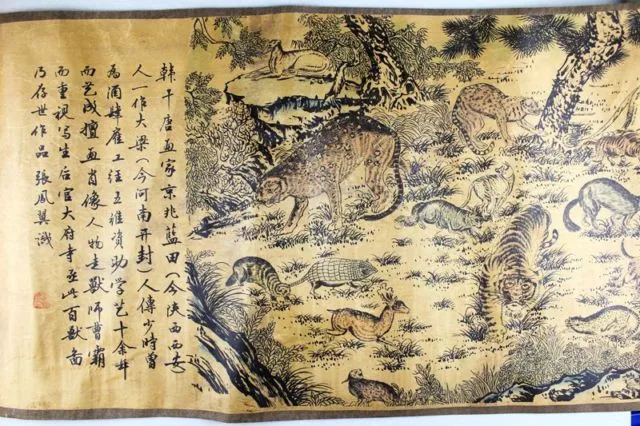 韩干唐画家京兆蓝田(今陕西西安)
人一作大梁(今河南开封)人傳少時曾
為酒肆雇工经王維資助学艺十余年
而艺成擅画肖像人物走獸師曹霸
而重視写生后官大府寺丞此百獸畵
乃存世作品張風翼識